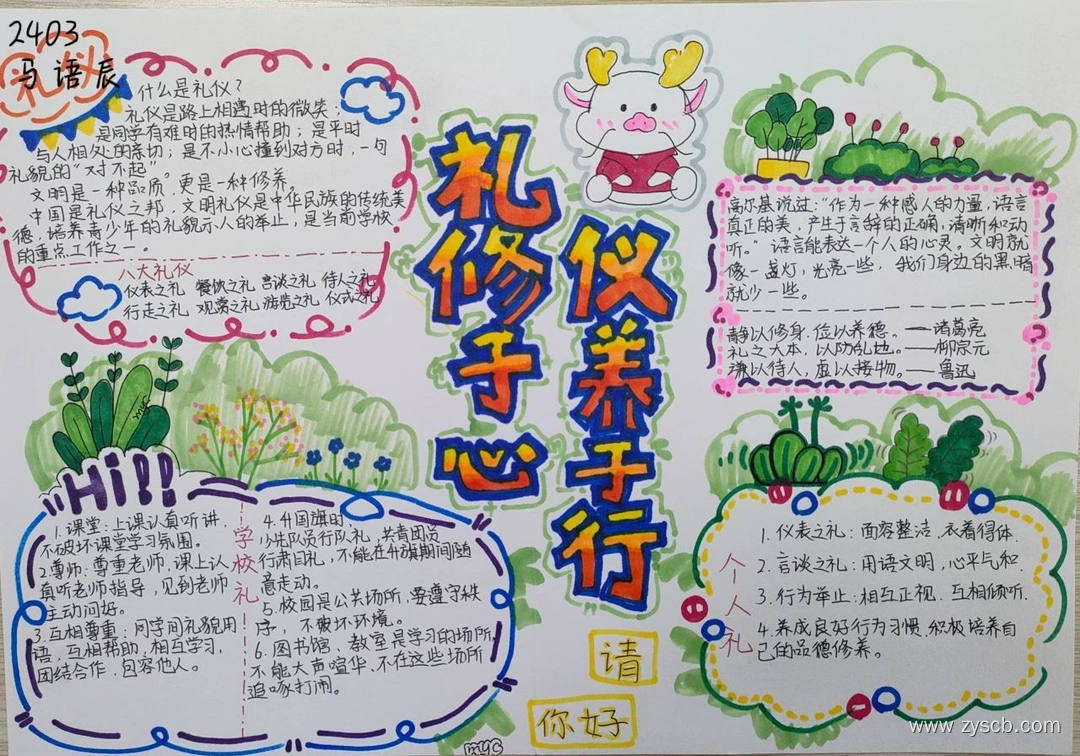 2403
礼仪
马语辰
什么是礼仪?
礼仪是路上相遇时的微笑;
是同学有难时的热情帮助;是平时
与人相处的亲切;是不小心撞到对方时,一句
礼貌的“对不起”。
文明是一种品质,更是一种修养。
中国是礼仪之邦,文明礼仪是中华民族的传统美
德,培养青少年的礼貌示人的举止,是当前学校
的重点工作之一。
八大礼仪
仪表之礼 餐饮之礼 言谈之礼 待人之礼
行走之礼 观赏之礼 游览之礼 仪式之礼
礼修于心
仪养于行
高尔基说过:“作为一种感人的力量,语言
真正的美,产生于言辞的正确,清晰和动
听。”语言能表达一个人的心灵。文明就
像一盏灯,光亮一些,我们身边的黑暗
就少一些。
静以修身,俭以养德。——诸葛亮
礼之大本,以防乱也。——柳宗元
谦以待人,虚以接物。——鲁迅
myc
Hi!!
学校礼
1.课堂:上课认真听讲,
不破坏课堂学习氛围。
2.尊师:尊重老师,课上认
真听老师指导,见到老师
主动问好。
3.互相尊重:同学间礼貌用
语,互相帮助,相互学习,
团结合作,包容他人。
4.升国旗时,
少先队员行队礼,共青团员
行肃目礼,不能在升旗期间随
意走动。
5.校园是公共场所,要遵守秩
序,不破坏环境。
6.图书馆、教室是学习的场所,
不能大声喧华,不在这些场所
追啄打闹。
个人礼
1.仪表之礼:面容整洁,衣着得体.
2.言谈之礼:用语文明,心平气和
3.行为举止:相互正视,互相倾听.
4.养成良好行为习惯,积极培养自
己的品德修养。
请
你好
myc
www.zyscb.com